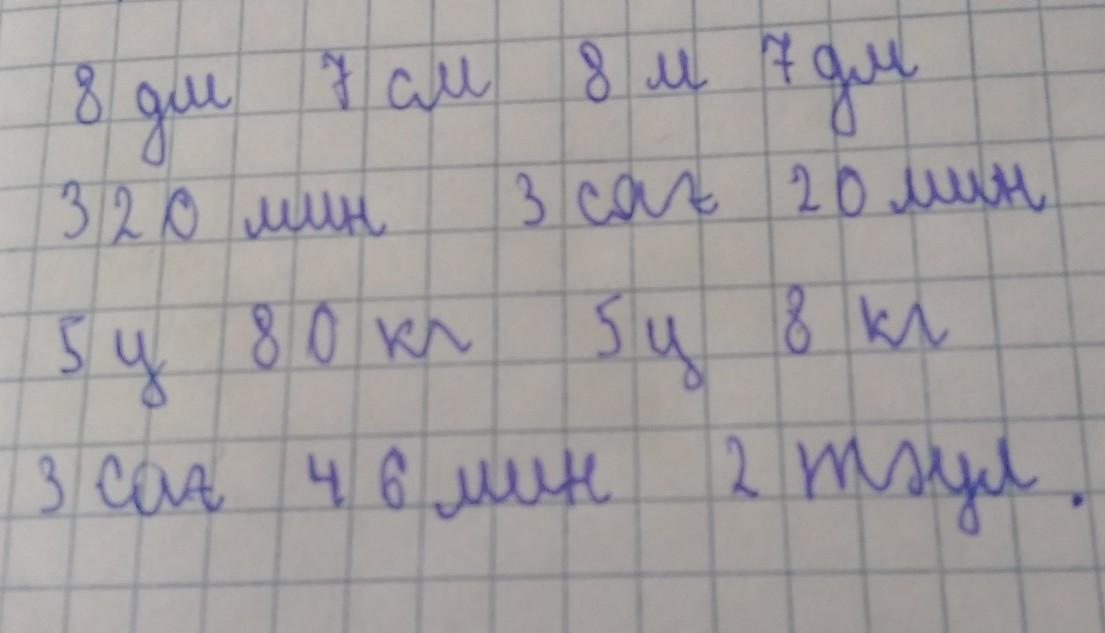 8 дм 7 см 8 м 7 дм
320 мин 3 сағ 20 мин
5 ц 80 кг 5 ц 8 кг
3 сағ 46 мин 2 тәул.